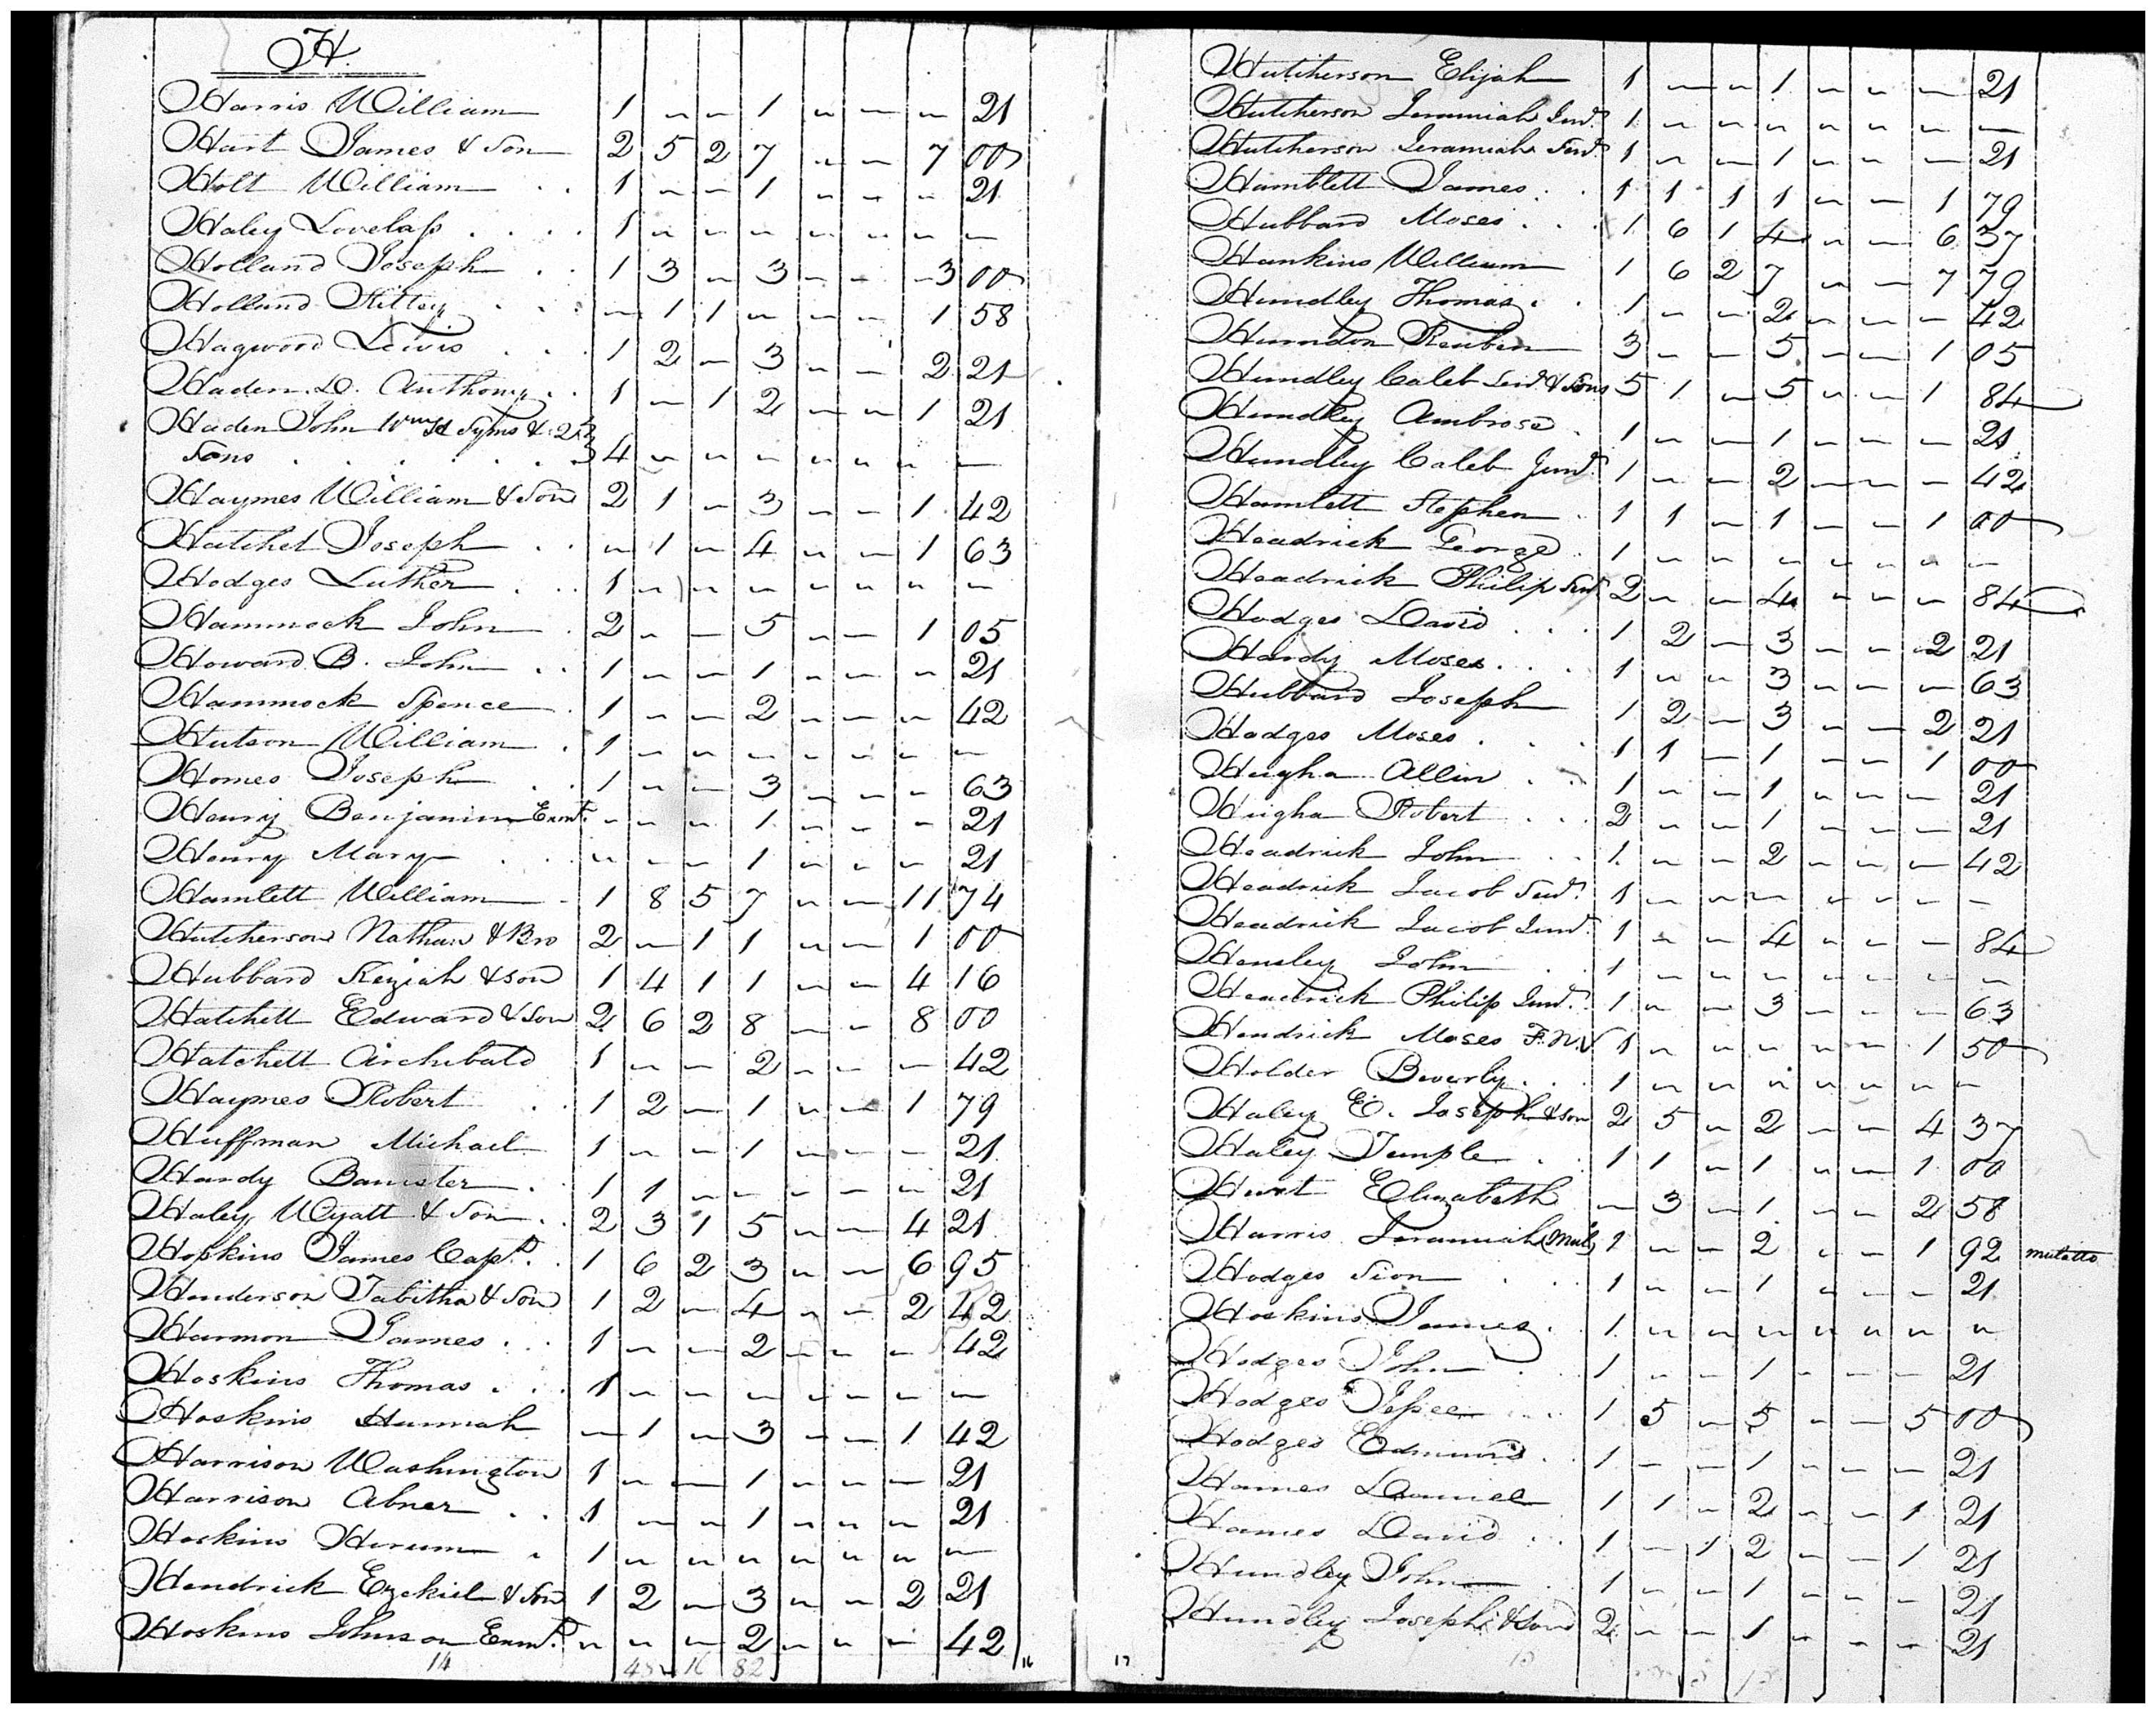 H.
Harris William 1 ~ ~ 1 ~ ~ ~ 21
Hart James & Son 2 5 2 7 ~ ~ 7 00
Holt William . . 1 ~ ~ 1 ~ ~ ~ 21
Haley Lovelass . . . . 1 ~ ~ ~ ~ ~ ~ ~
Holland Joseph . . 1 3 ~ 3 ~ ~ 3 00
Holland . . . ~ 1 1 ~ ~ ~ 1 58
Hagwood Lewis . . . 1 2 ~ 3 ~ ~ 2 21
Haden D. Anthony . . 1 ~ 1 2 ~ ~ 1 21
Haden John Wm H Syms & 2
Sons . . . . . . 4 ~ ~ ~ ~ ~ ~ ~
Haymes William & Son 2 1 ~ 3 ~ ~ 1 42
Hatchet Joseph . . ~ 1 ~ 4 ~ ~ 1 63
Hodges Luther . . 1 ~ ~ ~ ~ ~ ~ ~
Hammock John . 2 ~ ~ 5 ~ ~ 1 05
Howard B. John . . 1 ~ ~ 1 ~ ~ ~ 21
Hammock Spence . 1 ~ ~ 2 ~ ~ ~ 42
Hutson William . 1 ~ ~ ~ ~ ~ ~ ~
Homes Joseph . . 1 ~ ~ 3 ~ ~ ~ 63
Henry Benjamin Exmt. ~ ~ ~ 1 ~ ~ ~ 21
Henry Mary . . ~ ~ ~ 1 ~ ~ ~ 21
Hamlett William 1 8 5 7 ~ ~ 11 74
Hutcherson Nathan & Bro 2 ~ 1 1 ~ ~ 1 00
Hubbard Keziah & son 1 4 1 1 ~ ~ 4 16
Hatchett Edward & Son 2 6 2 8 ~ ~ 8 00
Hatchett Archibald 1 ~ ~ 2 ~ ~ ~ 42
Haymes Robert . 1 2 ~ 1 ~ ~ 1 79
Huffman Michael 1 ~ ~ 1 ~ ~ ~ 21
Hardy Banister . 1 1 ~ ~ ~ ~ ~ 21
Haley Wyatt & Son . 2 3 1 5 ~ ~ 4 21
Hopkins James Capt. . 1 6 2 3 ~ ~ 6 95
Henderson Tabitha & Son 1 2 ~ 4 ~ ~ 2 42
Harmon James . . . 1 ~ ~ 2 ~ ~ ~ 42
Hoskins Thomas . . . 1 ~ ~ ~ ~ ~ ~ ~
Hoskins Hannah ~ 1 ~ 3 ~ ~ 1 42
Harrison Washington 1 ~ ~ 1 ~ ~ ~ 21
Harrison Abner . . 1 ~ ~ 1 ~ ~ ~ 21
Hoskins Hirum . 1 ~ ~ ~ ~ ~ ~ ~
Hendrick Ezekiel & Son 1 2 ~ 3 ~ ~ 2 21
Hoskins Johnson Exmt. ~ ~ ~ 2 ~ ~ ~ 42
14 16 82 16
Hutcherson Elijah 1 ~ ~ 1 ~ ~ ~ 21
Hutcherson Jeramiah Junr. 1 ~ ~ ~ ~ ~ ~ ~
Hutcherson Jeramiah Senr. 1 ~ ~ 1 ~ ~ ~ 21
Hamblett James . . 1 1 1 1 ~ ~ 1 79
Hubbard Moses . . . 1 6 1 4 ~ ~ 6 37
Hankins William 1 6 2 7 ~ ~ 7 79
Hundley Thomas . . 1 ~ ~ 2 ~ ~ ~ 42
Hurndon Reuben 3 ~ ~ 5 ~ ~ 1 05
Hundley Caleb Senr. & Sons 5 1 ~ 5 ~ ~ 1 84
Hundley Ambrose . 1 ~ ~ 1 ~ ~ ~ 21
Hundley Caleb Junr. 1 ~ ~ 2 ~ ~ ~ 42
Hamlett Stephen . 1 1 ~ 1 ~ ~ 1 00
Headrick George . . 1 ~ ~ ~ ~ ~ ~ ~
Headrick Philip Senr 2 ~ ~ 4 ~ ~ ~ 84
Hodges David . . . 1 2 ~ 3 ~ ~ 2 21
Hardy Moses . . . 1 ~ ~ 3 ~ ~ ~ 63
Hubbard Joseph 1 2 ~ 3 ~ ~ 2 21
Hodges Moses . . . 1 1 ~ 1 ~ ~ 1 00
Hughs Allin . . 1 ~ ~ 1 ~ ~ ~ 21
Hughs Robert . . . 2 ~ ~ 1 ~ ~ ~ 21
Headrick John . . 1 ~ ~ 2 ~ ~ ~ 42
Headrick Jacob Senr. 1 ~ ~ ~ ~ ~ ~ ~
Headrick Jacob Junr. 1 ~ ~ 4 ~ ~ ~ 84
Hensley John . . 1 ~ ~ ~ ~ ~ ~ ~
Headrick Philip Junr. 1 ~ ~ 3 ~ ~ ~ 63
Hendrick Moses F.N. 1 ~ ~ ~ ~ ~ 1 50
Holder Beverly . . . 1 ~ ~ ~ ~ ~ ~ ~
Haley E. Joseph & son 2 5 ~ 2 ~ ~ 4 37
Haley Temple . . 1 1 ~ 1 ~ ~ 1 00
Hurt Elizabeth ~ 3 ~ 1 ~ ~ 2 58
Harris Jeramiah (Mul) 1 ~ ~ 2 ~ ~ 1 92 mulatto
Hodges Sion . . . 1 ~ ~ 1 ~ ~ ~ 21
Hoskins James . . 1 ~ ~ ~ ~ ~ ~ ~
Hodges John . 1 ~ ~ 1 ~ ~ ~ 21
Hodges Jessee . . . 1 5 ~ 5 ~ ~ 5 00
Hodges Edmund . . 1 ~ ~ 1 ~ ~ ~ 21
Hames Daniel 1 1 ~ 2 ~ ~ 1 21
Hames David . . . 1 ~ 1 2 ~ ~ 1 21
Hundley John . 1 ~ ~ 1 ~ ~ ~ 21
Hundley Joseph & Son 2 ~ ~ 1 ~ ~ ~ 21
17